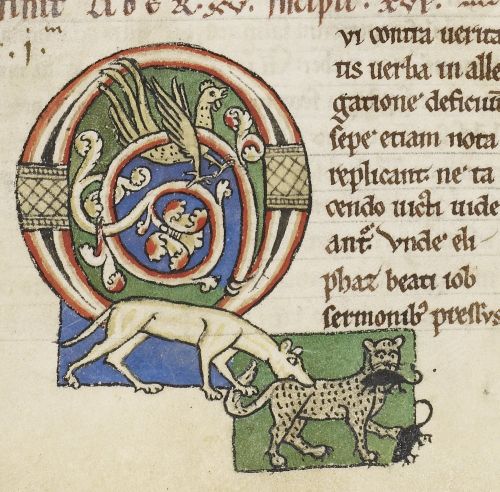 finit lib er .xv. Incipit .xvi.
.j.
Qvi contra verita
tis uerba in alle
gatione deficiu͞t
sepe etiam nota
replicant. ne ta
cendo uicti uide
ant͛. Vnde eli
phaz beati iob
sermonib; pressus